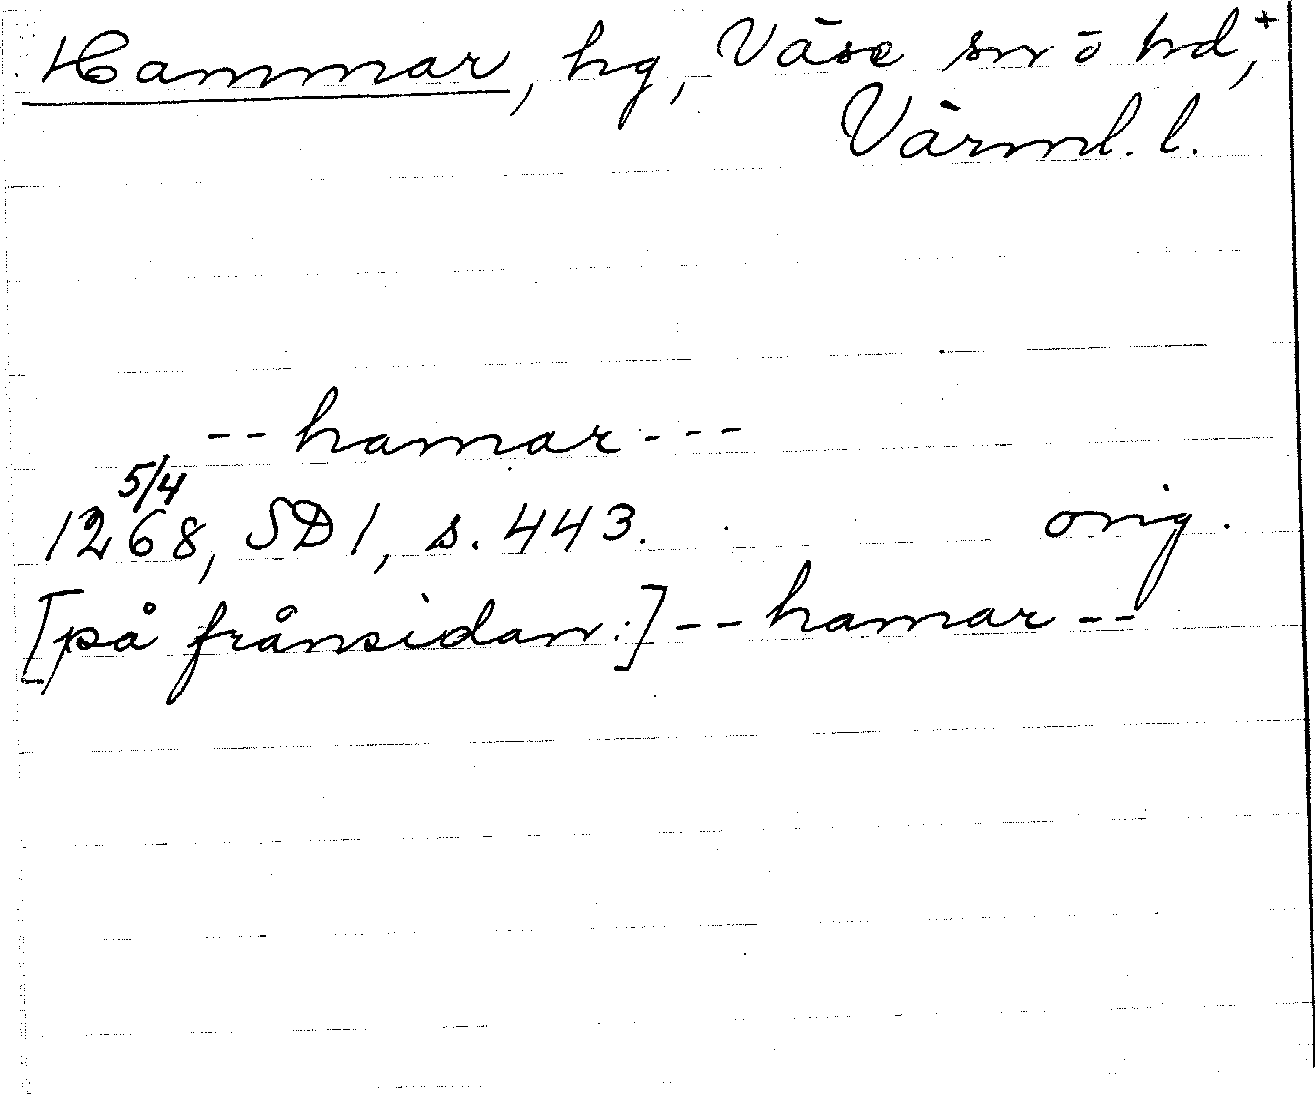 Hammar, hg, Väse sn ō hd,+
Värml. l.
-- hamar ---
5/4
1268, SD 1, s. 443. orig.
[på frånsidan:] -- hamar --